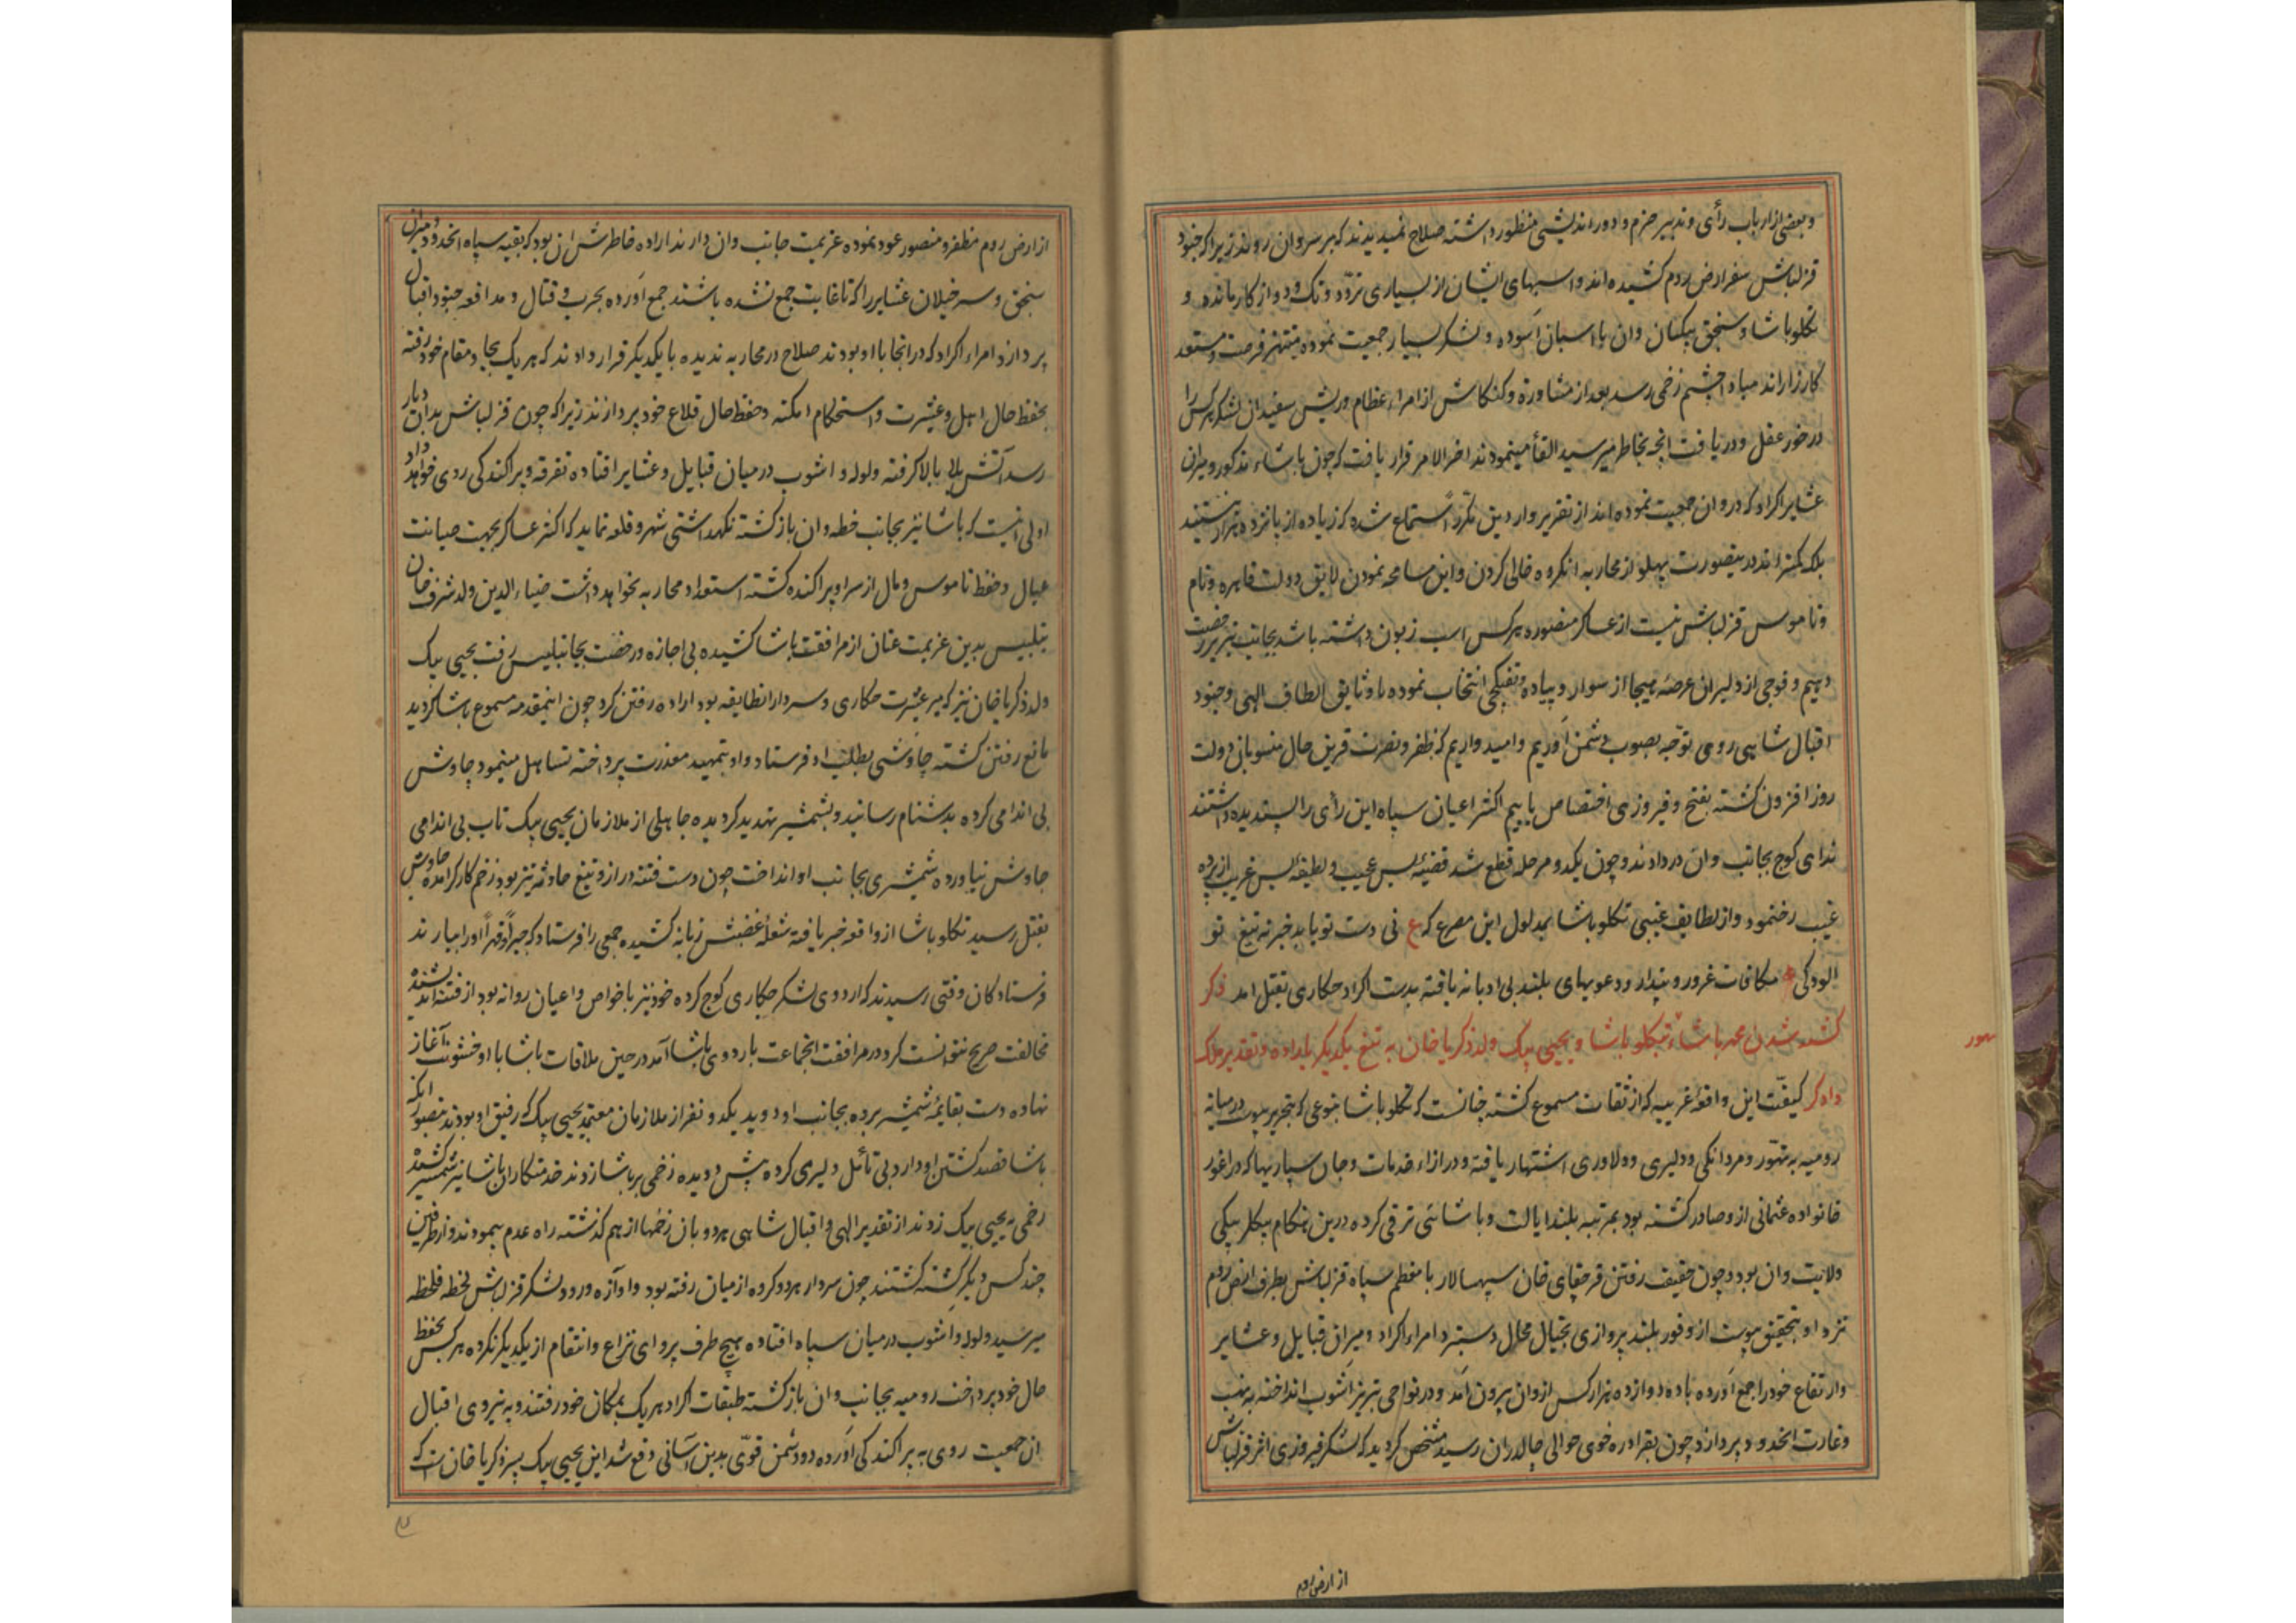 و بعضی از ارباب رأی و تدبیر حزم و دوراندیشی منظور داشته صلاح نمیدیدند که بر سر وان روند زیرا که جنود
قزلباش سفر ارض روم کشیده اند و اسبهای ایشان از بسیاری تردّد و تک و دو از کار مانده و
تکلو پاشا و سنجق بیکیان وان با اسبان آسوده و لشکر بسیار جمعیت نموده منتهز فرصت و مستعد
کارزاراند مبادا چشم زخمی رسد بعد از مشاوره و کنکاش از امراء عظام و ریش سفیدان لشکر هرکس را
در خور عقل و دریافت انچه بخاطر میرسید القأ مینمودند اخر الامر قرار یافت که چون پاشاء مذکور و میران
عشایر اکراد که در وان جمعیت نموده اند از تقریر واردین مکرّراً استماع شده که زیاده از پانزده هزار نیستند
بلکه کمتراند درینصورت پهلو از محاربه انکروه خالی کردن و این مسامحه نمودن لایق دولت قاهره و نام
و ناموس قزلباش نیست از عساکر منصوره هرکس اسب زبون داشته باشد بجانب تبریز رخصت
دهیم و فوجی از دلیران عرصهٔ هیجا از سوار و پیاده و تفنکچی انتخاب نموده با وثایق الطاف الهی و جنود
اقبال شاهی روی توجه بصوب دشمن آوریم و امیدواریم که ظفر و نصرت قرین حال منسوبان دولت
روز افزون کشته بفتح و فیروزی اختصاص یابیم اکثر اعیان سپاه این رأی را پسندیده داشتند
ندای کوچ بجانب وان در دادند و چون یکدو مرحله قطع شد قضیهٔ بس عجیب و لطیفهٔ بس غریب از پرده
غیب رخنمود و از لطایف غیبی تکلو پاشا بمدلول این مصرع که ع نی دست تو یابد خبر نه تیغ تو
الودکی مکافات غرور و پندار و دعویهای بلند بی ادبانه یافته بدست اکراد حکاری بقتل امد ذکر
کشته شدن محمد پاشاء تکلو پاشا و یحیی بیک ولد ذکریا خان به تیغ یکدیکر باراده و تقدیر ملک
داور کیفیّت این واقعهٔ غریبه که از ثقات مسموع کشته چنانست که تکلو پاشا بنوعی که بتحریر پیوست در میانه
رومیه به تهوّر و مردانکی و دلیری و دلاوری اشتهار یافته و در ازاء خدمات و جان سپاریها که در اغور
خانواده عثمانی از و صادر کشته بود بمرتبه بلند ایالت و پاشائی ترقی کرده درین هنکام بیکلر بیکی
ولایت وان بود و چون حقیقت رفتن قرچقای خان سپهسالار با معظم سپاه قزلباش بطرف ارض روم
نزد او بتحقیق پیوست از وفور بلند پروازی بخیال محال دستبرد امراء اکراد و میران قبایل و عشایر
و ارتفاع خود را جمع آورده با ده دوازده هزار کس از وان بیرون آمد و در نواحی تبریز آشوب انداخته به نهب
و غارت انحدود پردازد چون بقراء دره خوی حوالی چالدران رسید مشخص کردید که لشکر فیروزی اثر قزلباش
از ارض روم
از ارض روم مظفر و منصور عود نموده عزیمت جانب وان دارند اراده خاطرش ان بود که بقیه سپاه انحدود و میران
سنجق و سرخیلان عشایر را که تا غایت جمع نشده باشند جمع آورده بحرب و قتال و مدافعه جنود اقبال
پردازد امراء اکراد که در انجا با او بودند صلاح در محاربه ندیده با یکدیکر قرار دادند که هر یک بجا و مقام خود رفته
بحفظ حال اهل و عشیرت و استحکام امکنه و حفظ حال قلاع خود پردازند زیرا که چون قزلباش بدان دیار
رسد آتش بلا بالا کرفته ولوله و اشوب در میان قبایل و عشایر افتاده تفرقه و پراکندکی روی خواهد داد
اولی انیست که پاشا نیز بجانب خطه وان بازکشته نکهداشتی شهر و قلعه نماید که اکثر عساکر بجهت صیانت
عیال و حفظ ناموس و مال از سر او پراکنده کشته استعداد محاربه نخواهد داشت ضیاء الدین ولد شرف خان
بتلیس بدین عزیمت عنان از مرافقت پاشا کشیده بی اجازه و رخصت بجانب تبلیس رفت یحیی بیک
ولد ذکریا خان نیز که میر عشرت حکاری و سردار انطایفه بود اراده رفتن کرد چون اینمقدمه مسموع پاشا کردید
مانع رفتن کشته چاوشی بطلب او فرستاد و او بتمهید معذرت پرداخته تساهل مینمود چاوش
بی اندامی کرده بدشنام رسانید و بشمشیر تهدید کردیده جاهلی از ملازمان یحیی بیک تاب بی اندامی
چاوش نیاورده شمشیری بجانب او انداخت چون دست فتنه دراز و تیغ حادثه تیز بود زخم کارکر آمده چاوش
بقتل رسید تکلو پاشا از واقعه خبر یافته شعلهٔ غضبش زبانه کشیده جمعی را فرستاد که جبراً و قهراً او را بیارند
فرستادکان وقتی رسیدند که اردوی لشکر حکاری کوچ کرده خود نیز با خواص و اعیان روانه بود از فتنه اندیشیده
مخالفت صریح نتوانست کرد در مرافقت انجماعت باردوی پاشا آمد در حین ملاقات پاشا با او خشونت آغاز
نهاده دست بقایمهٔ شمشیر برده بجانب او دوید یکدو نفر از ملازمان معتمد یحیی بیک که رفیق او بودند بتصور انکه
پاشا قصد کشتن او دارد بی تأمل دلیری کرده پیش دویده زخمی بر پاشا زدند خدمتکاران پاشا نیز شمشیر کشیده
زخمی به یحیی بیک زدند از تقدیر الهی و اقبال شاهی هر دو بان زخمها از هم کذشته راه عدم پیمودند و از طرفین
چند کس دیکر کشته کشتند چون سردار هر دو کرده از میان رفته بود و اوآزه ورود لشکر قزلباش لحظه فلحظه
میرسید ولوله و اشوب در میان سپاه افتاده هیچ طرف پروای نزاع و انتقام از یکدیکر نکرده هرکس بحفظ
حال خود پرداخت رومیه بجانب وان بازکشته طبقات اکراد هر یک بمکان خود رفتند و به نیروی اقبال
ان جمعیت روی به پراکندکی آورده دو دشمن قوّی بدین آسانی دفع شد این یحیی بیک پسر ذکریا خان است که